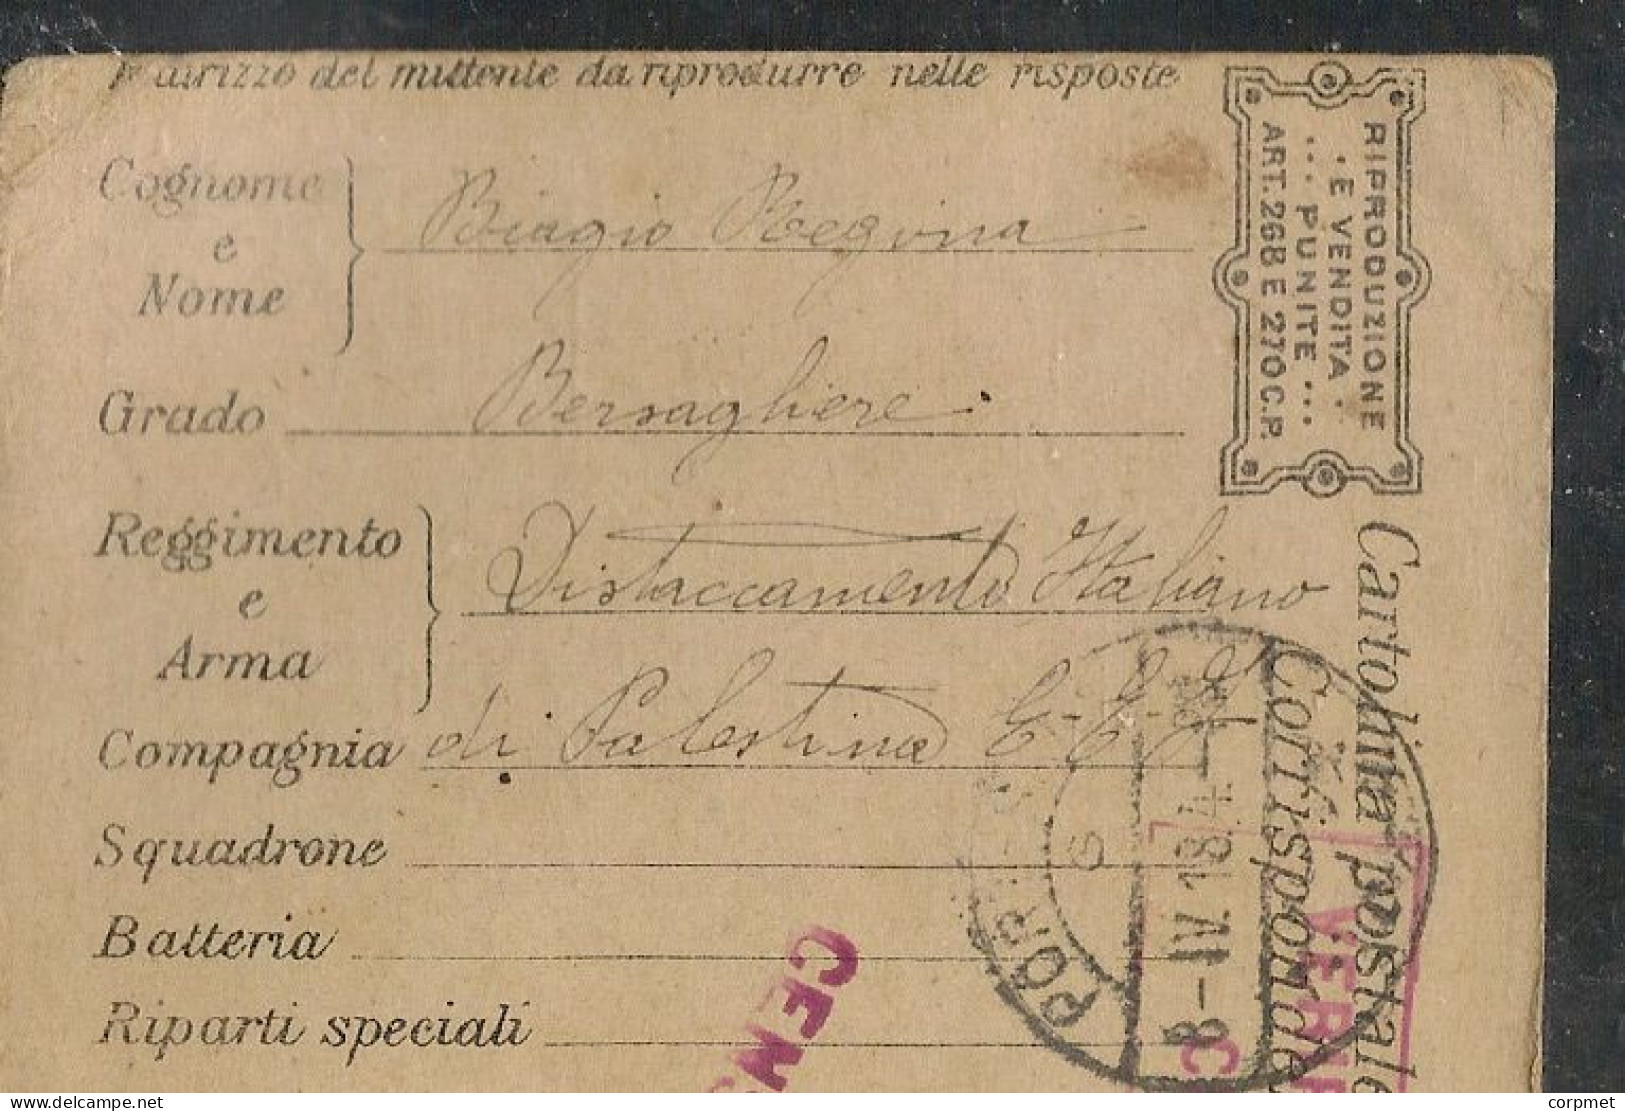 Indirizzo del mittente da riprodurre nelle risposte
Cognome e Nome
Biagio Regina
Grado Bersagliere
Reggimento e Arma
Distaccamento Italiano
Compagnia di Palestina E.E.F.
Squadrone
Batteria
Riparti speciali
RIPRODUZIONE
· E VENDITA ·
... PUNITE ...
ART. 268 E 270 C.P.
Cartolina postale
Corrisponde
8-IV 18.4
6
POR
CENS
VERIF
C
corpmet